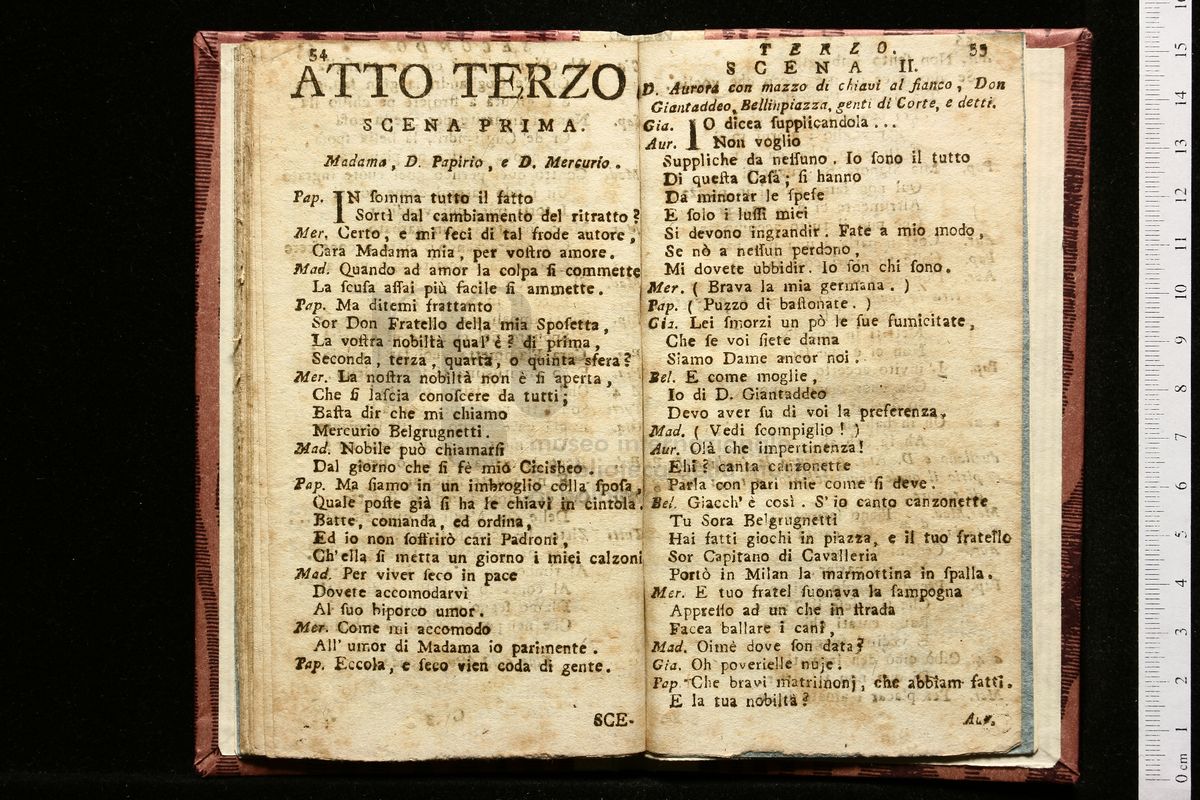 54
ATTO TERZO
SCENA PRIMA.
Madama, D. Papirio, e D. Mercurio.
Pap. IN ſomma tutto il fatto
Sortì dal cambiamento del ritratto?
Mer. Certo, e mi feci di tal frode autore,
Cara Madama mia, per voſtro amore.
Mad. Quando ad amor la colpa ſi commette
La ſcuſa aſſai più facile ſi ammette.
Pap. Ma ditemi frattanto
Sor Don Fratello della mia Spoſetta,
La voſtra nobiltà qual' è? di prima,
Seconda, terza, quarta, o quinta sfera?
Mer. La noſtra nobiltà non è ſi aperta,
Che ſi laſcia conoſcere da tutti;
Baſta dir che mi chiamo
Mercurio Belgrugnetti.
Mad. Nobile può chiamarſi
Dal giorno che ſi fè mio Cicisbeo.
Pap. Ma ſiamo in un imbroglio colla ſpoſa,
Quale poſte già ſi ha le chiavi in cintola.
Batte, comanda, ed ordina,
Ed io non ſoffrirò cari Padroni,
Ch'ella ſi metta un giorno i miei calzoni
Mad. Per viver ſeco in pace
Dovete accomodarvi
Al ſuo biporco umor.
Mer. Come mi accomodo
All' umor di Madama io parimente.
Pap. Eccola, e ſeco vien coda di gente.
SCE-
TERZO.
55
SCENA II.
D. Aurora con mazzo di chiavi al fianco, Don
Giantaddeo, Bellinpiazza, genti di Corte, e detti.
Gia. IO dicea ſupplicandola...
Aur. Non voglio
Suppliche da neſſuno. Io ſono il tutto
Di queſta Caſa; ſi hanno
Da minorar le ſpeſe
E ſolo i luſſi miei
Si devono ingrandir. Fate a mio modo,
Se nò a neſſun perdono,
Mi dovete ubbidir. Io ſon chi ſono.
Mer. ( Brava la mia germana. )
Pap. ( Puzzo di baſtonate. )
Gia. Lei ſmorzi un pò le ſue fumicitate,
Che ſe voi ſiete dama
Siamo Dame ancor noi.
Bel. E come moglie,
Io di D. Giantaddeo
Devo aver ſu di voi la preferenza.
Mad. ( Vedi ſcompiglio! )
Aur. Olà che impertinenza!
Ehi? canta canzonette
Parla con pari mie come ſi deve.
Bel. Giacch' è così. S'io canto canzonette
Tu Sora Belgrugnetti
Hai fatti giochi in piazza, e il tuo fratello
Sor Capitano di Cavalleria
Portò in Milan la marmottina in ſpalla.
Mer. E tuo fratel ſuonava la ſampogna
Appreſſo ad un che in ſtrada
Facea ballare i cani,
Mad. Oimè dove ſon data?
Gia. Oh poverielle nuje.
Pap. Che bravi matrimonj, che abbiam fatti.
E la tua nobiltà?
Aur.
museo internazionale
biblioteca
0 cm 1 2 3 4 5 6 7 8 9 10 11 12 13 14 15